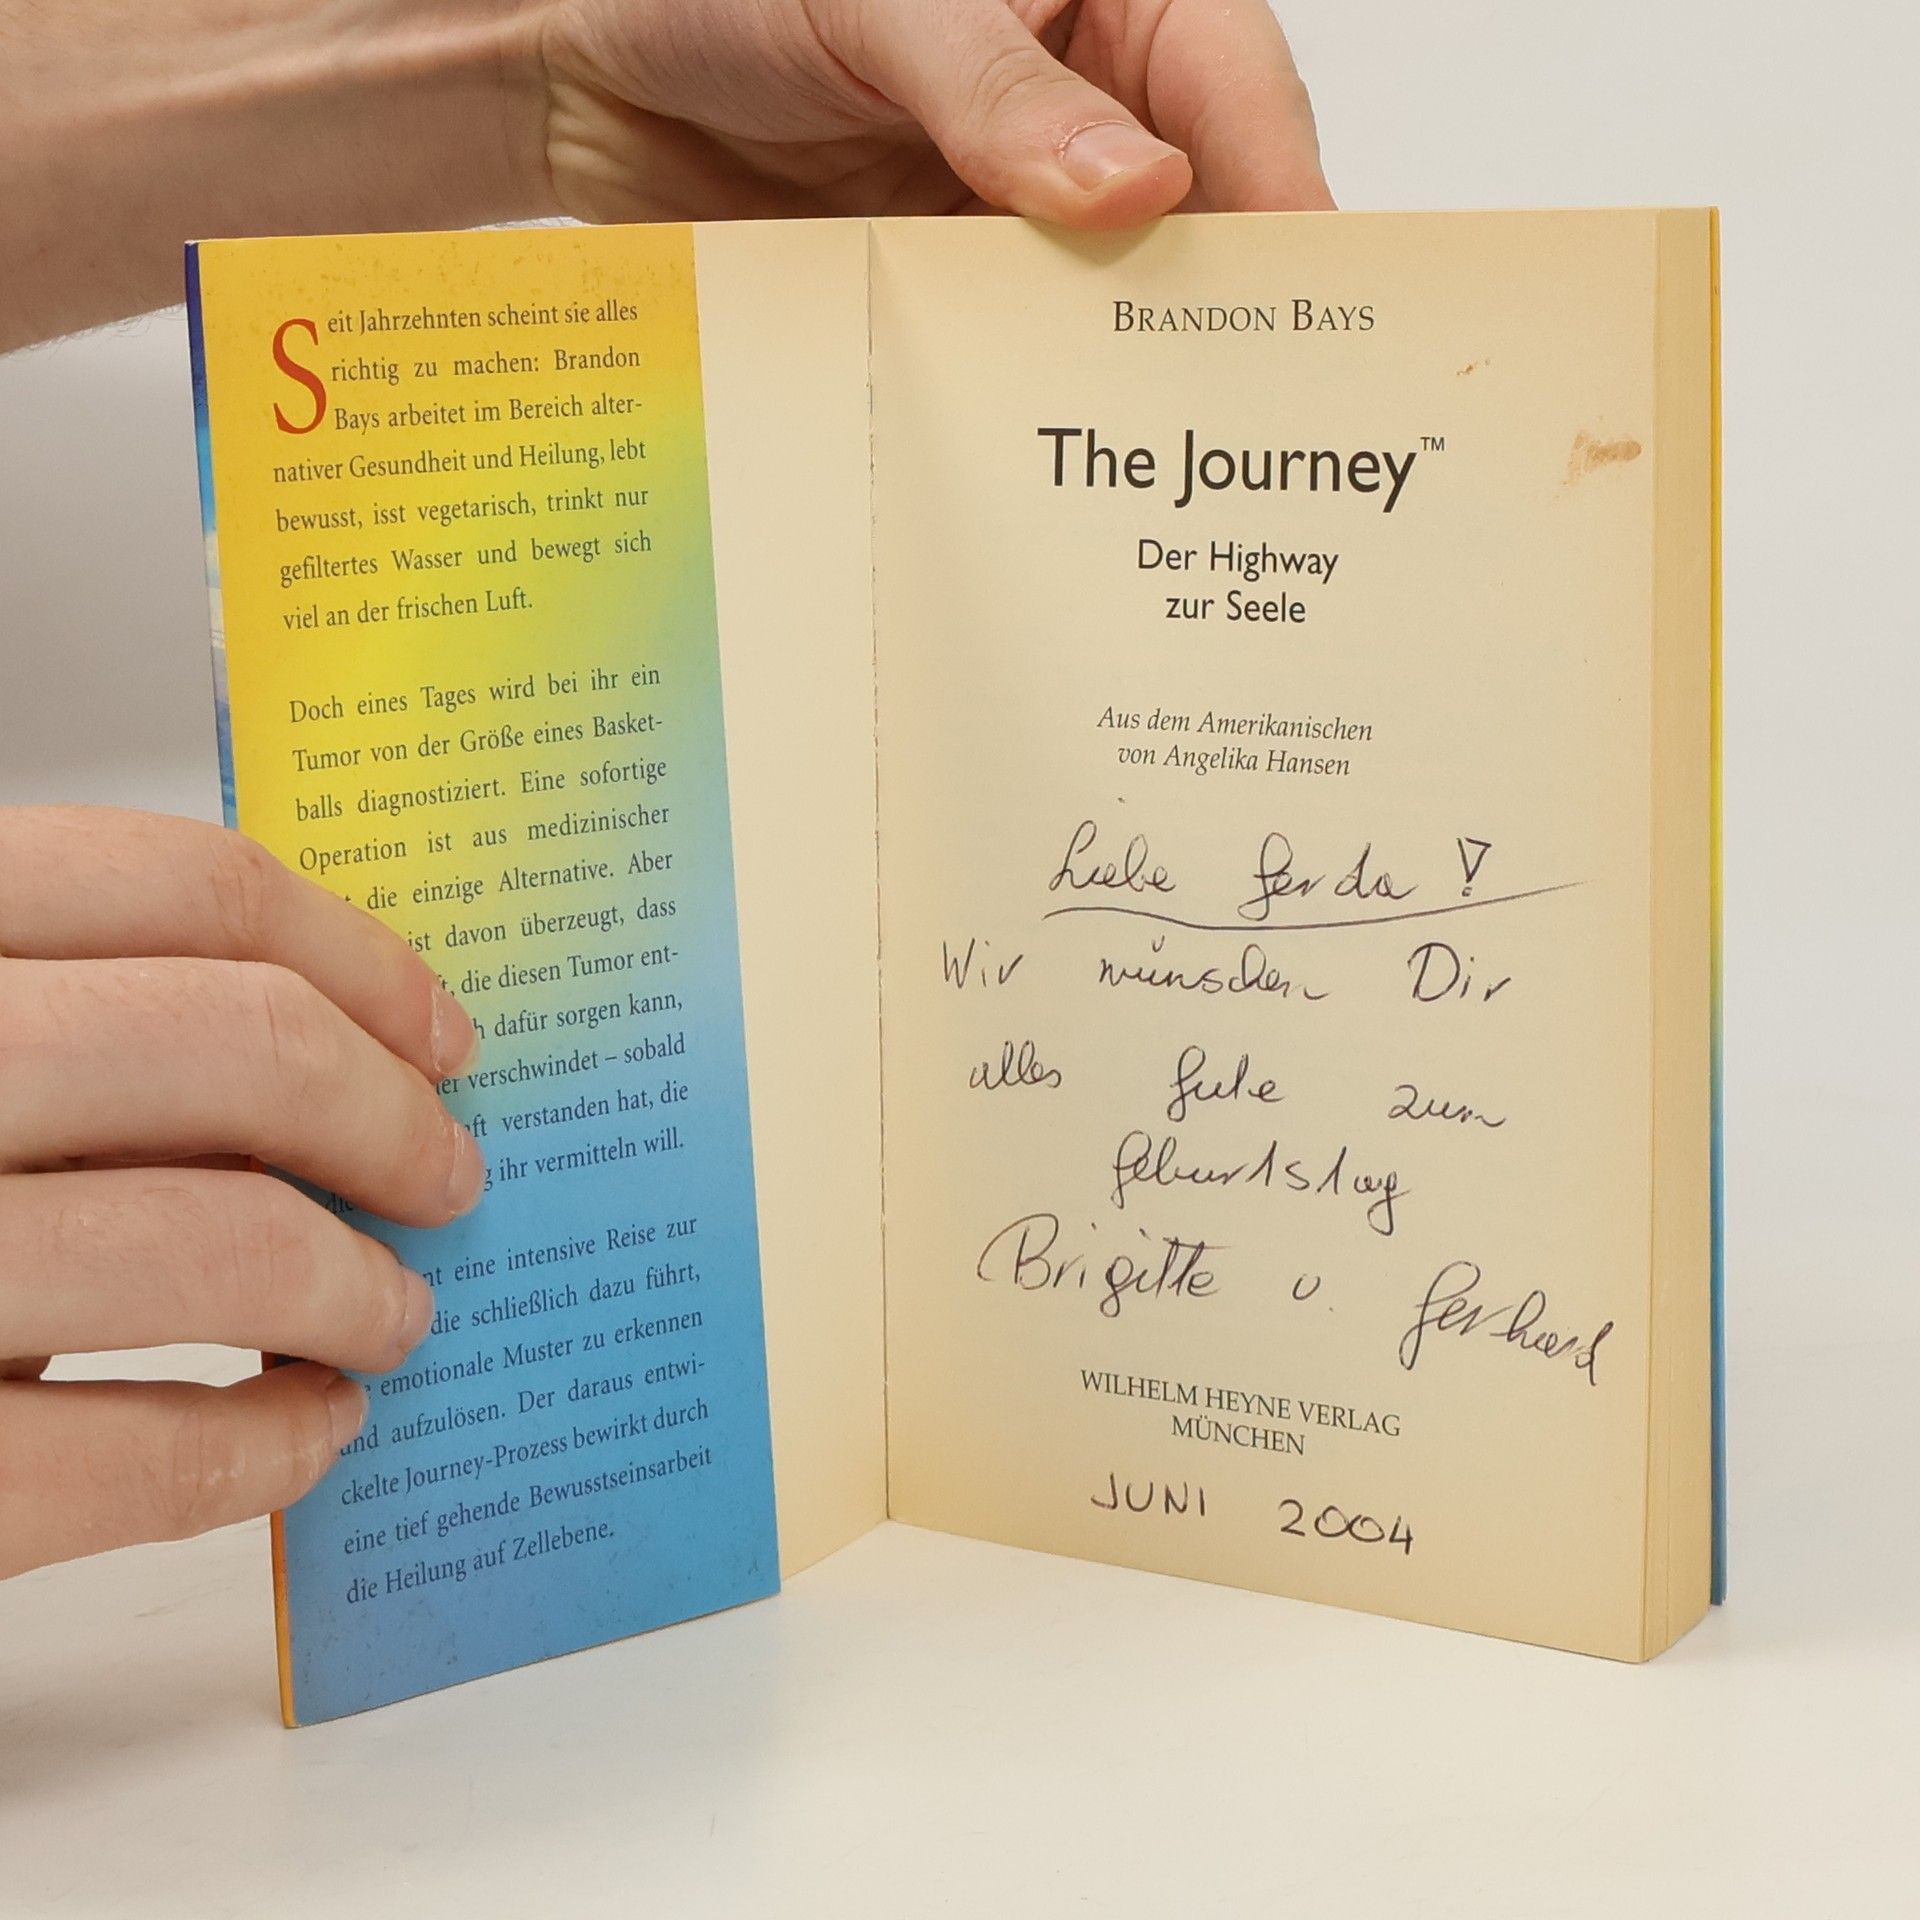 Seit Jahrzehnten scheint sie alles
richtig zu machen: Brandon
Bays arbeitet im Bereich alter-
nativer Gesundheit und Heilung, lebt
bewusst, isst vegetarisch, trinkt nur
gefiltertes Wasser und bewegt sich
viel an der frischen Luft.
Doch eines Tages wird bei ihr ein
Tumor von der Größe eines Basket-
balls diagnostiziert. Eine sofortige
Operation ist aus medizinischer
die einzige Alternative. Aber
ist davon überzeugt, dass
die diesen Tumor ent-
dafür sorgen kann,
verschwindet – sobald
verstanden hat, die
ihr vermitteln will.
eine intensive Reise zur
die schließlich dazu führt,
emotionale Muster zu erkennen
und aufzulösen. Der daraus entwi-
ckelte Journey-Prozess bewirkt durch
eine tief gehende Bewusstseinsarbeit
die Heilung auf Zellebene.
BRANDON BAYS
The Journey™
Der Highway
zur Seele
Aus dem Amerikanischen
von Angelika Hansen
Liebe Gerda!
Wir wünschen Dir
alles Gute zum
Geburtstag
Brigitte u. Gerhard
WILHELM HEYNE VERLAG
MÜNCHEN
JUNI 2004